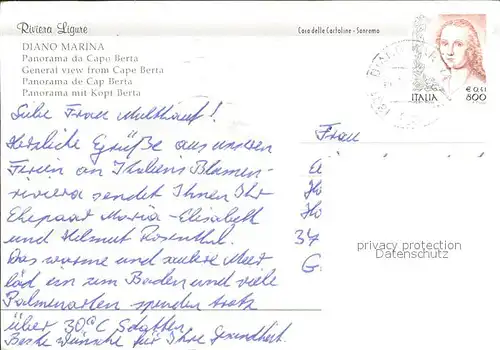 Riviera Ligure
Casa delle Cartoline - Sanremo
DIANO MARINA
Panorama da Capo Berta
General view from Cape Berta
Panorama de Cap Berta
Panorama mit Kopt Berta
ITALIA
€ 0,41
800
Liebe Frau Multhauf!
Herzliche Grüße aus unseren
Ferien an Italiens Blumen-
riviera sendet Ihnen Ihr
Ehepaar Maria-Elisabeth
und Helmut Rosenthal.
Das warme und saubere Meer
läd ein zum Baden und viele
Palmenarten spenden trotz
über 30°C Schatten.
Beste Wünsche für Ihre Gesundheit.
Frau
37
G.
privacy protection
Datenschutz